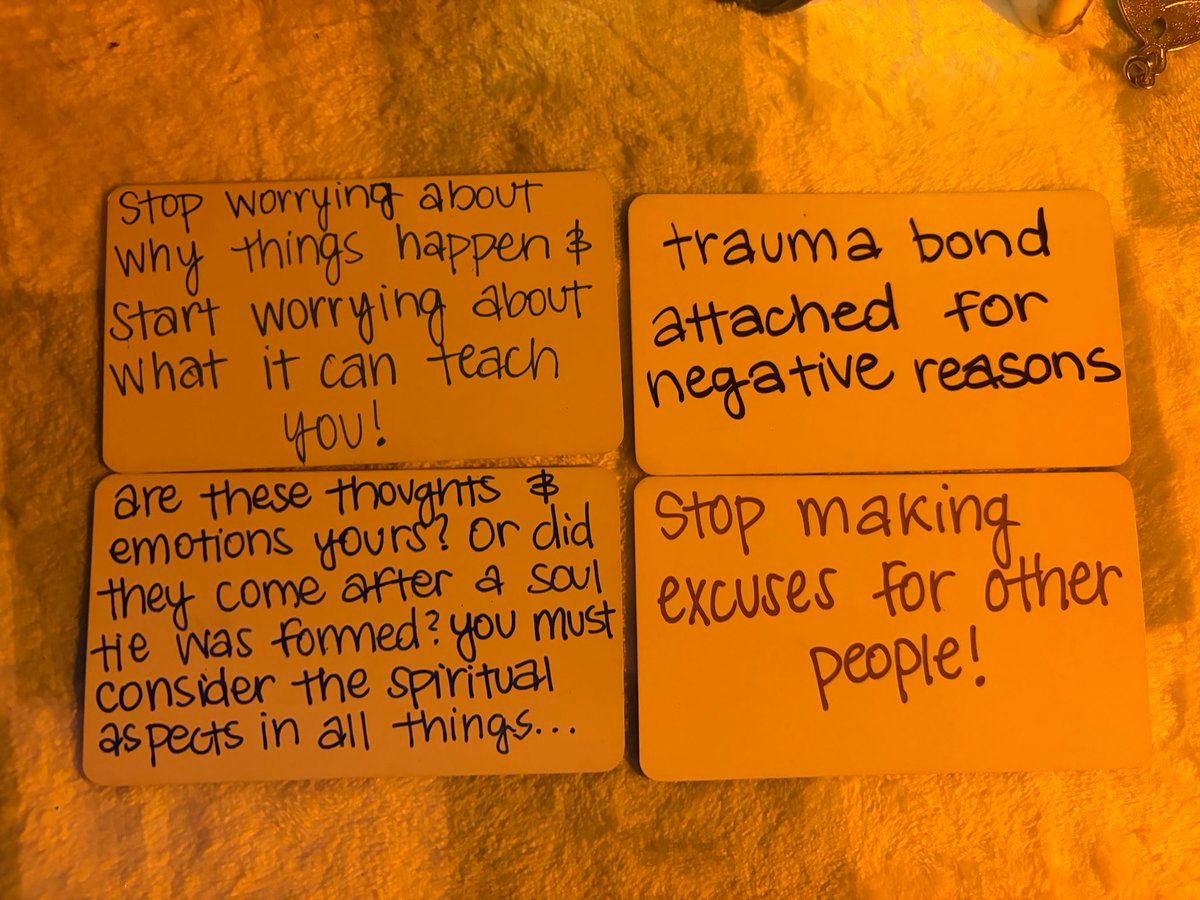 Stop worrying about
why things happen &
Start worrying about
what it can teach
you!
trauma bond
attached for
negative reasons
are these thoughts &
emotions yours? Or did
they come after a soul
tie was formed? you must
consider the spiritual
aspects in all things...
Stop making
excuses for other
people!